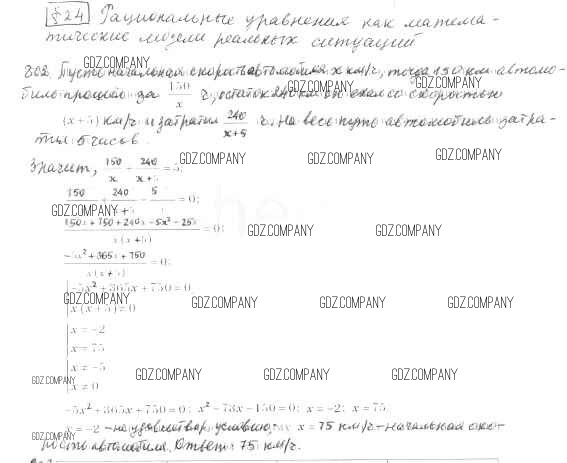 §24 Рациональные уравнения как матема-
тические модели реальных ситуаций
GDZ.COMPANY
802. Пусть начальная скорость автомобиля x км/ч, тогда 150 км автомо-
GDZ.COMPANY GDZ.COMPANY
биль прошёл за 150/x ч, остаток 240 км он ехал со скоростью
(x + 5) км/ч и затратил 240/x+5 ч. На весь путь автомобиль затра-
тил 5 часов.
GDZ.COMPANY GDZ.COMPANY GDZ.COMPANY
Значит, 150/x + 240/x+5 = 5;
150 240 5 = 0;
GDZ.COMPANY
150x + 750 + 240x − 5x² − 25x / x(x + 5) = 0;
GDZ.COMPANY GDZ.COMPANY
−5x² + 365x + 750 / x(x + 5) = 0;
−5x² + 365x + 750 = 0
GDZ.COMPANY GDZ.COMPANY GDZ.COMPANY GDZ.COMPANY
x(x + 5) = 0
x = −2
x = 75
x = −5
GDZ.COMPANY GDZ.COMPANY GDZ.COMPANY GDZ.COMPANY
x = 0
−5x² + 365x + 750 = 0; x² − 73x − 150 = 0; x = −2; x = 75.
x = −2 – не удовлетвор. условию; x = 75 км/ч – начальная ско-
GDZ.COMPANY
рость автомобиля. Ответ: 75 км/ч.